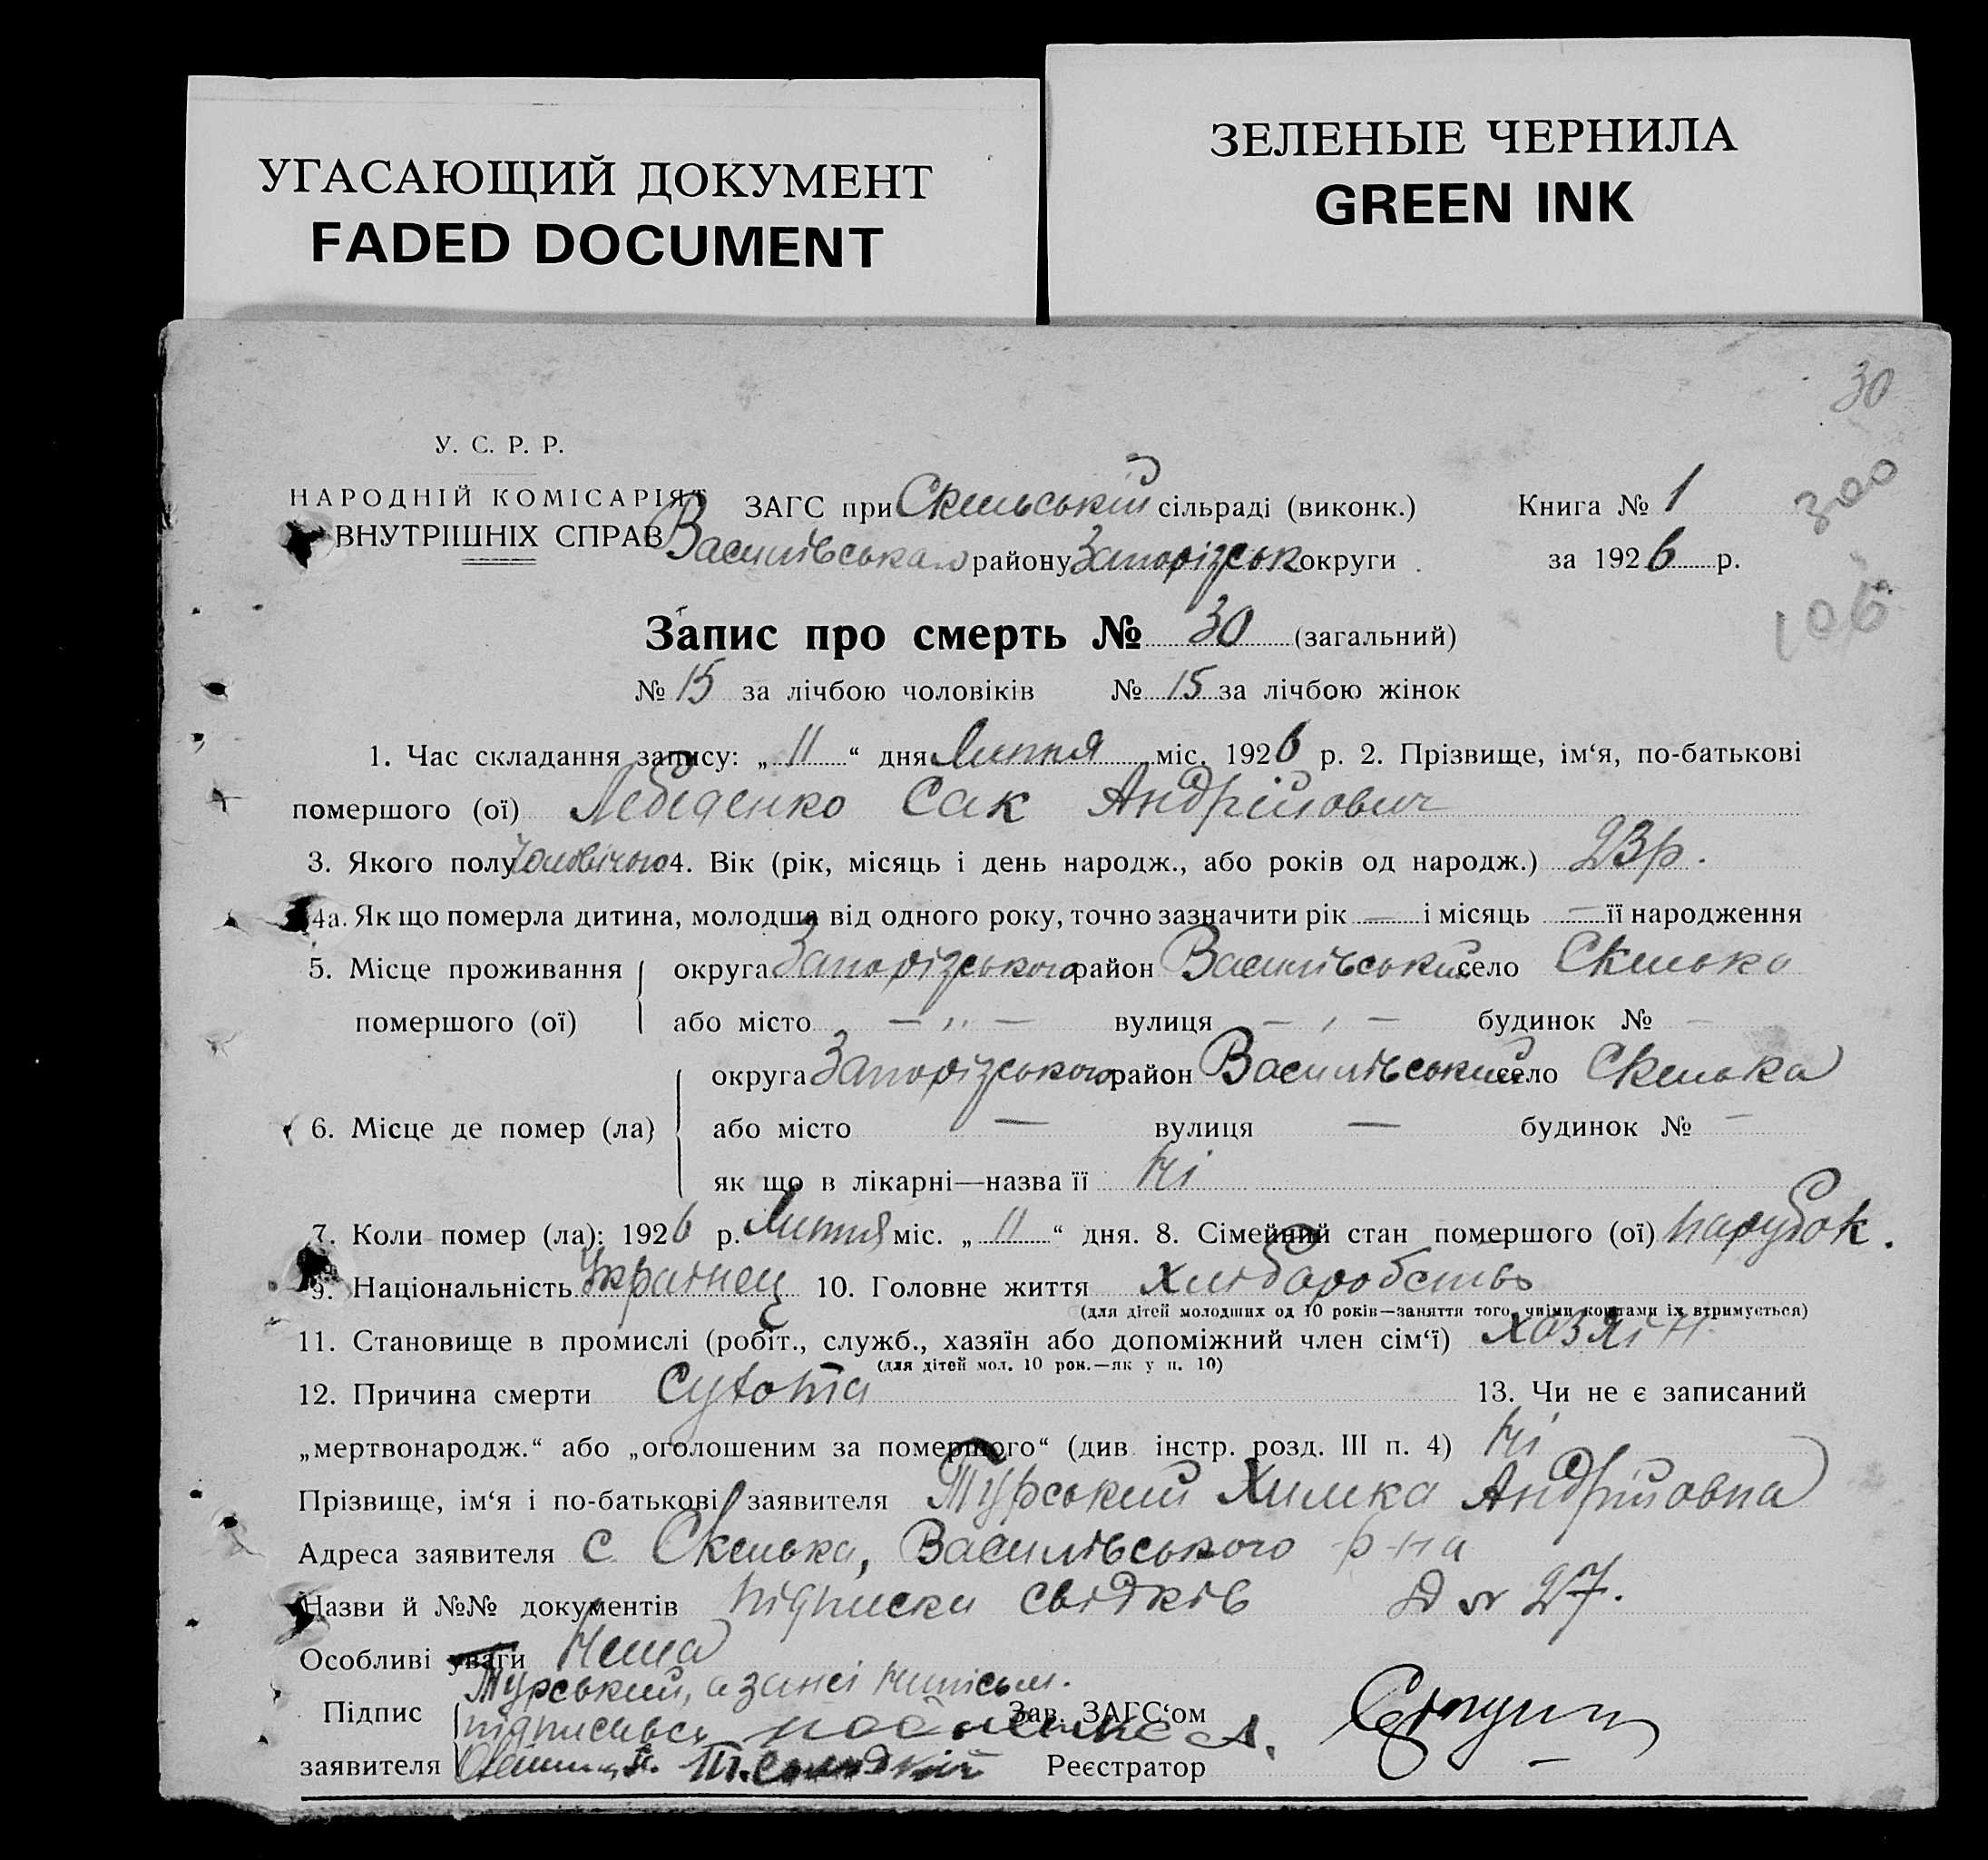 УГАСАЮЩИЙ ДОКУМЕНТ
FADED DOCUMENT
ЗЕЛЕНЫЕ ЧЕРНИЛА
GREEN INK
30
У. С. Р. Р.
НАРОДНІЙ КОМІСАРІЯТ
ВНУТРІШНІХ СПРАВ
ЗАГС при Скельській сільраді (виконк.)
Василівська го району Запорізськ округи
Книга № 1
за 1926 р.
300
106
Запис про смерть № 30 (загальний)
№ 15 за лічбою чоловіків № 15 за лічбою жінок
1. Час складання запису: „ 11 “ дня Липня міс. 1926 р. 2. Прізвище, ім‘я, по-батькові
помершого (ої) Лебеденко Сак Андрійович
3. Якого полу Чоловічого 4. Вік (рік, місяць і день народж., або років од народж.) 23 р.
4а. Як що померла дитина, молодша від одного року, точно зазначити рік — і місяць — її народження
5. Місце проживання округа Запорізського район Василівський село Скелька
помершого (ої) або місто — „ — вулиця — , — будинок № —
округа Запорізського район Василівський село Скелька
6. Місце де помер (ла) або місто — вулиця — будинок № —
як що в лікарні—назва її Ні
7. Коли помер (ла): 1926 р. Липня міс. „ 11 “ дня. 8. Сімейний стан помершого (ої) парубок.
9. Національність Українец 10. Головне життя Хліборобство
(для дітей молодших од 10 років—заняття того, чиїми коштами їх втримується)
11. Становище в промислі (робіт., служб., хазяїн або допоміжний член сім‘ї) хазяїн
(для дітей мол. 10 рок.—як у п. 10)
12. Причина смерти Сухота 13. Чи не є записаний
„мертвонародж.“ або „оголошеним за помершого“ (див. інстр. розд. III п. 4) Ні
Прізвище, ім‘я і по-батькові заявителя Турський Химка Андрійовна
Адреса заявителя с. Скелька, Василівського р-на
Назви й №№ документів підписки свідків Д № 27.
Особливі уваги Нема
Турський, а за неї неписьм.
Підпис підписавсь Зав. ЗАГС‘ом
заявителя Реєстратор —